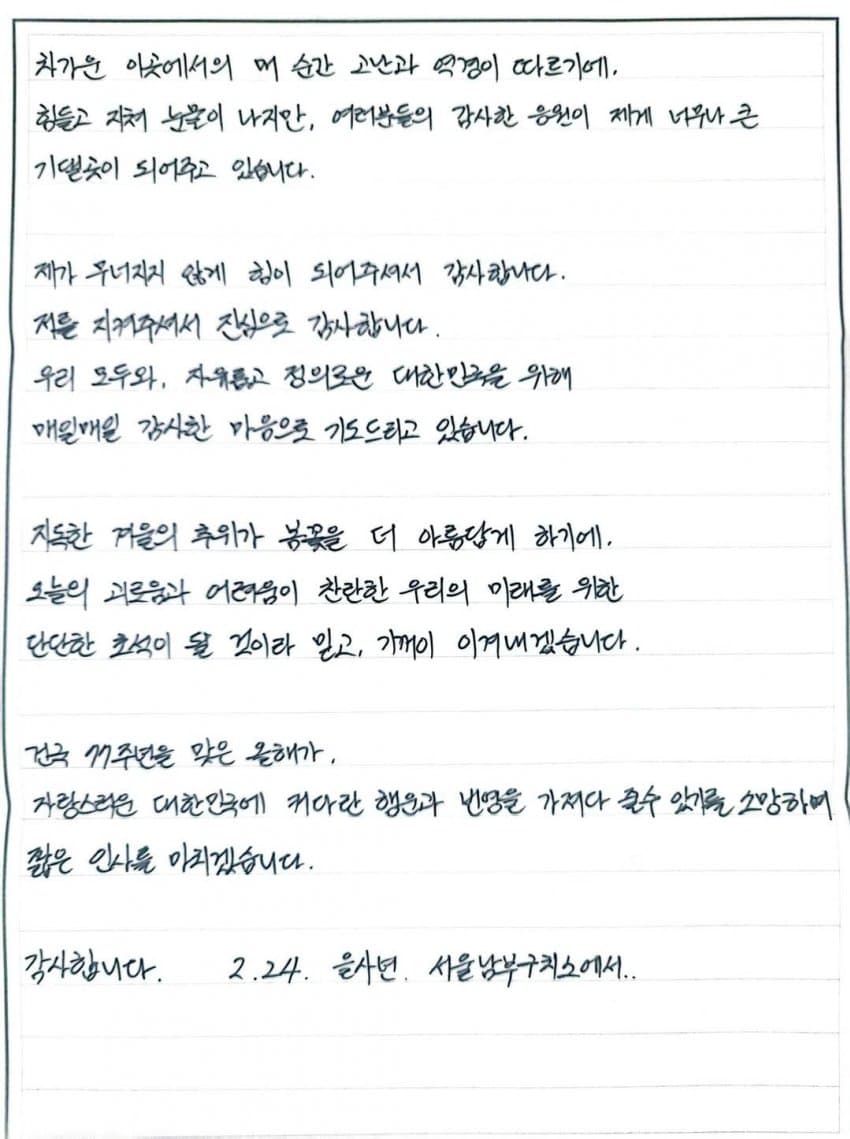 차가운 이곳에서의 매 순간 고난과 역경이 따르기에.
힘들고 지쳐 눈물이 나지만, 여러분들의 감사한 응원이 제게 너무나 큰
기댈곳이 되어주고 있습니다.
제가 무너지지 않게 힘이 되어주셔서 감사합니다.
저를 지켜주셔서 진심으로 감사합니다.
우리 모두와, 자유롭고 정의로운 대한민국을 위해
매일매일 감사한 마음으로 기도드리고 있습니다.
지독한 겨울의 추위가 봄꽃을 더 아름답게 하기에.
오늘의 괴로움과 어려움이 찬란한 우리의 미래를 위한
단단한 초석이 될 것이라 믿고, 기꺼이 이겨내겠습니다.
건국 77주년을 맞은 올해가,
자랑스러운 대한민국에 커다란 행운과 번영을 가져다 줄수 있기를 소망하며
짧은 인사를 마치겠습니다.
감사합니다. 2.24. 을사년. 서울남부구치소에서..